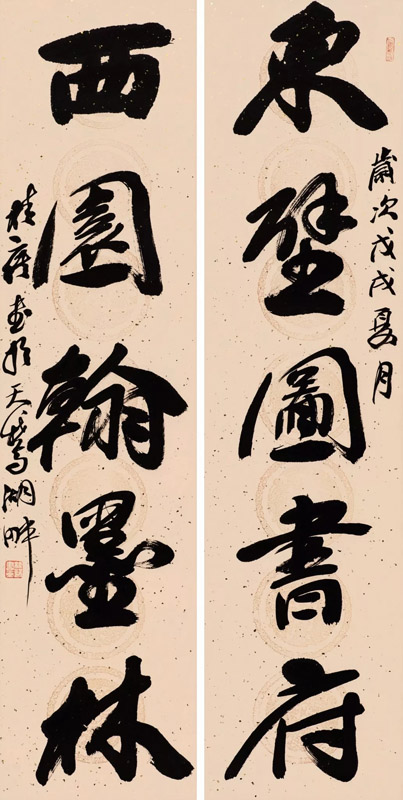 歲次戊戌夏月
東壁圖書府
西園翰墨林
書於天鵝湖畔